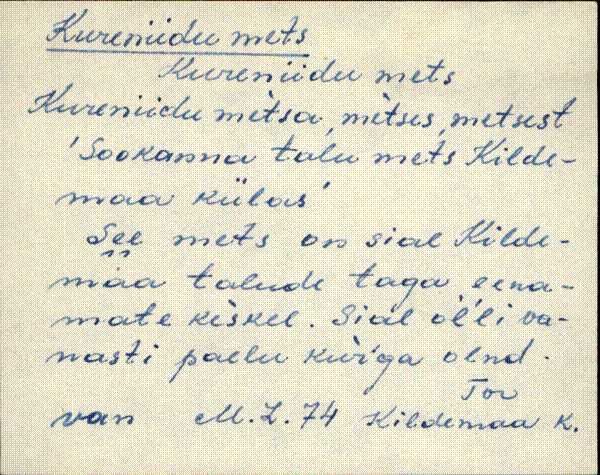 Kureniidu mets
Kureniidu mets
Kureniidu mètsa, mètses, metsest
'Sookanna talu mets Kilde-
maa külas'
See mets on sial Kilde-
maa talude taga eena-
mate kèskel. Sial òl'li va-
nasti paelu kùr'ga olnd.
Tor
van M.L. 74 Kildemaa k.